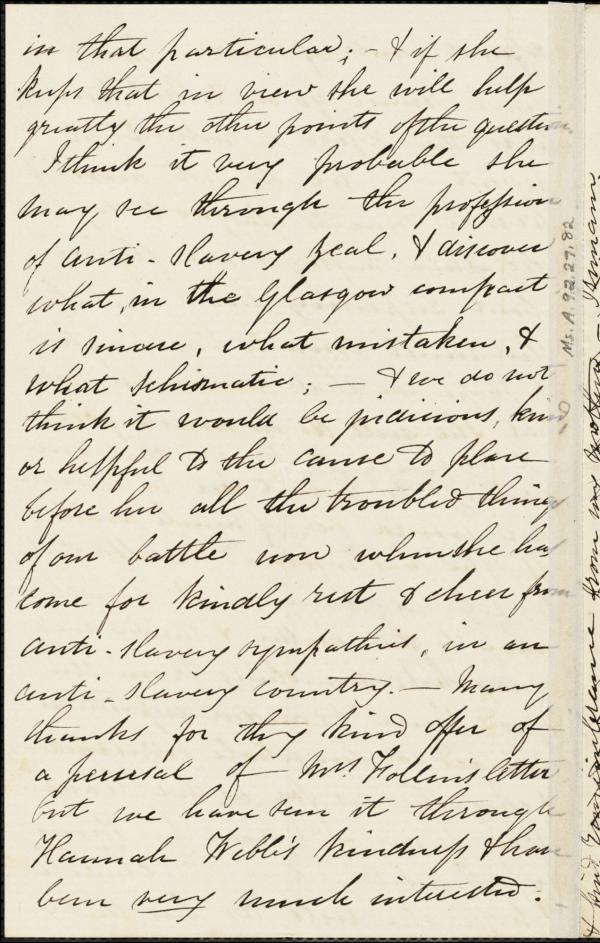 in that particular; - & if she
keeps that in view she will help
greatly the other points of the question.
I think it very probable she
may see through the profession
of anti-slavery zeal, & discover
what, in the Glasgow compact
is sincere, what mistaken, &
what schismatic; — & we do not
think it would be judicious, kind
or helpful to the cause to place
before her all the troubled things
of our battle now when she has
come for kindly rest & cheer from
anti-slavery sympathies, in an
anti-slavery country. — Many
thanks for thy kind offer of
a perusal of Mrs Follen's letter
but we have seen it through
Hannah Webb's kindness & have
been very much interested.
Ms. A.9.2.27.82
& kind remembrance from my mother